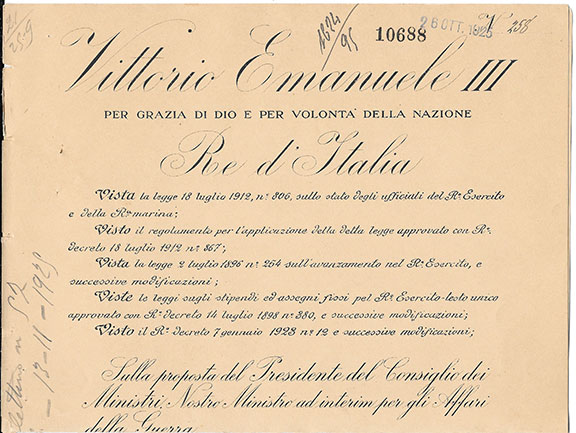 1624/95
10688
26 OTT. 1925
V° 258
259
Vittorio Emanuele III
PER GRAZIA DI DIO E PER VOLONTA' DELLA NAZIONE
Re d'Italia
Vista la legge 18 luglio 1912, n° 806, sullo stato degli ufficiali del R° Esercito
e della Rª marina;
Visto il regolamento per l'applicazione della detta legge approvato con R°
decreto 18 luglio 1912 n° 867;
Vista la legge 2 luglio 1896 n° 254 sull'avanzamento nel R° Esercito, e
successive modificazioni;
Viste le leggi sugli stipendi ed assegni fissi pel R° Esercito-testo unico
approvato con R° decreto 14 luglio 1898 n° 380, e successive modificazioni;
Visto il R° decreto 7 gennaio 1923 n° 12 e successive modificazioni;
Sulla proposta del Presidente del Consiglio dei
Ministri, Nostro Ministro ad interim per gli Affari
della Guerra
13-11-1925